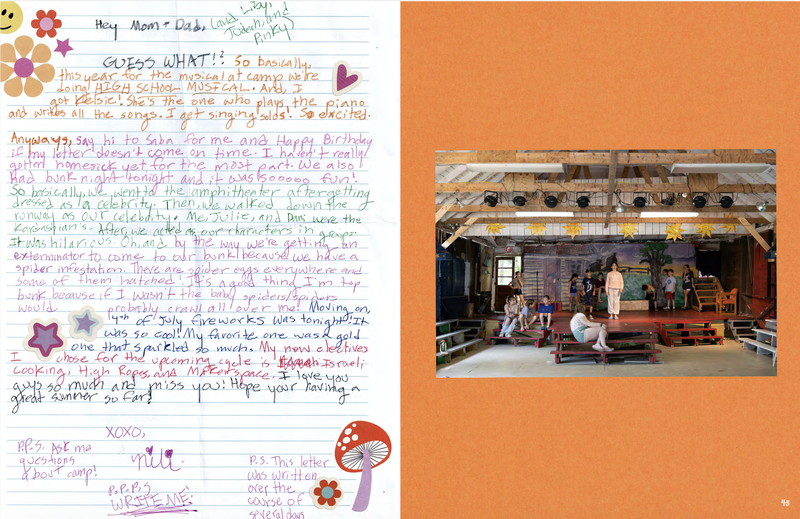 Hey Mom + Dad, (and Lizy,
Judah, and
Pinky)
GUESS WHAT!? So basically,
this year for the musical at camp we're
doing HIGH SCHOOL MUSICAL. And, I
got Kelsie! She's the one who plays the piano
and writes all the songs. I get singing solos! So excited.
Anyways, say hi to Saba for me and Happy Birthday
if my letter doesn't come on time. I haven't really
gotten homesick yet for the most part. We also
had bunk night tonight and it was sooooo fun!
So basically, we went to the amphitheater after getting
dressed as a celebrity. Then, we walked down the
runway as our celebrity. Me, Julie, and Dani were the
Kardashian's. After we acted as our characters in groups.
It was hilarious. Oh, and by the way we're getting an
exterminator to come to our bunk because we have a
spider infestation. There are spider eggs everywhere and
some of them hatched. It's a good thing I'm top
bunk because if I wasn't the baby spiders/spiders
would probably crawl all over me! Moving on,
4th of July fireworks was tonight! It
was so cool! My favorite one was a gold
one that sparkled so much. My new electives
I chose for the upcoming cycle is Israeli
Cooking, High Ropes, and Makerspace. I love you
guys so much and miss you! Hope your having a
great summer so far!
XOXO,
nili
P.S. This letter
was written
over the
course of
several days
P.P.S. Ask me
questions
about camp!
P.P.P.S
WRITE ME!
93